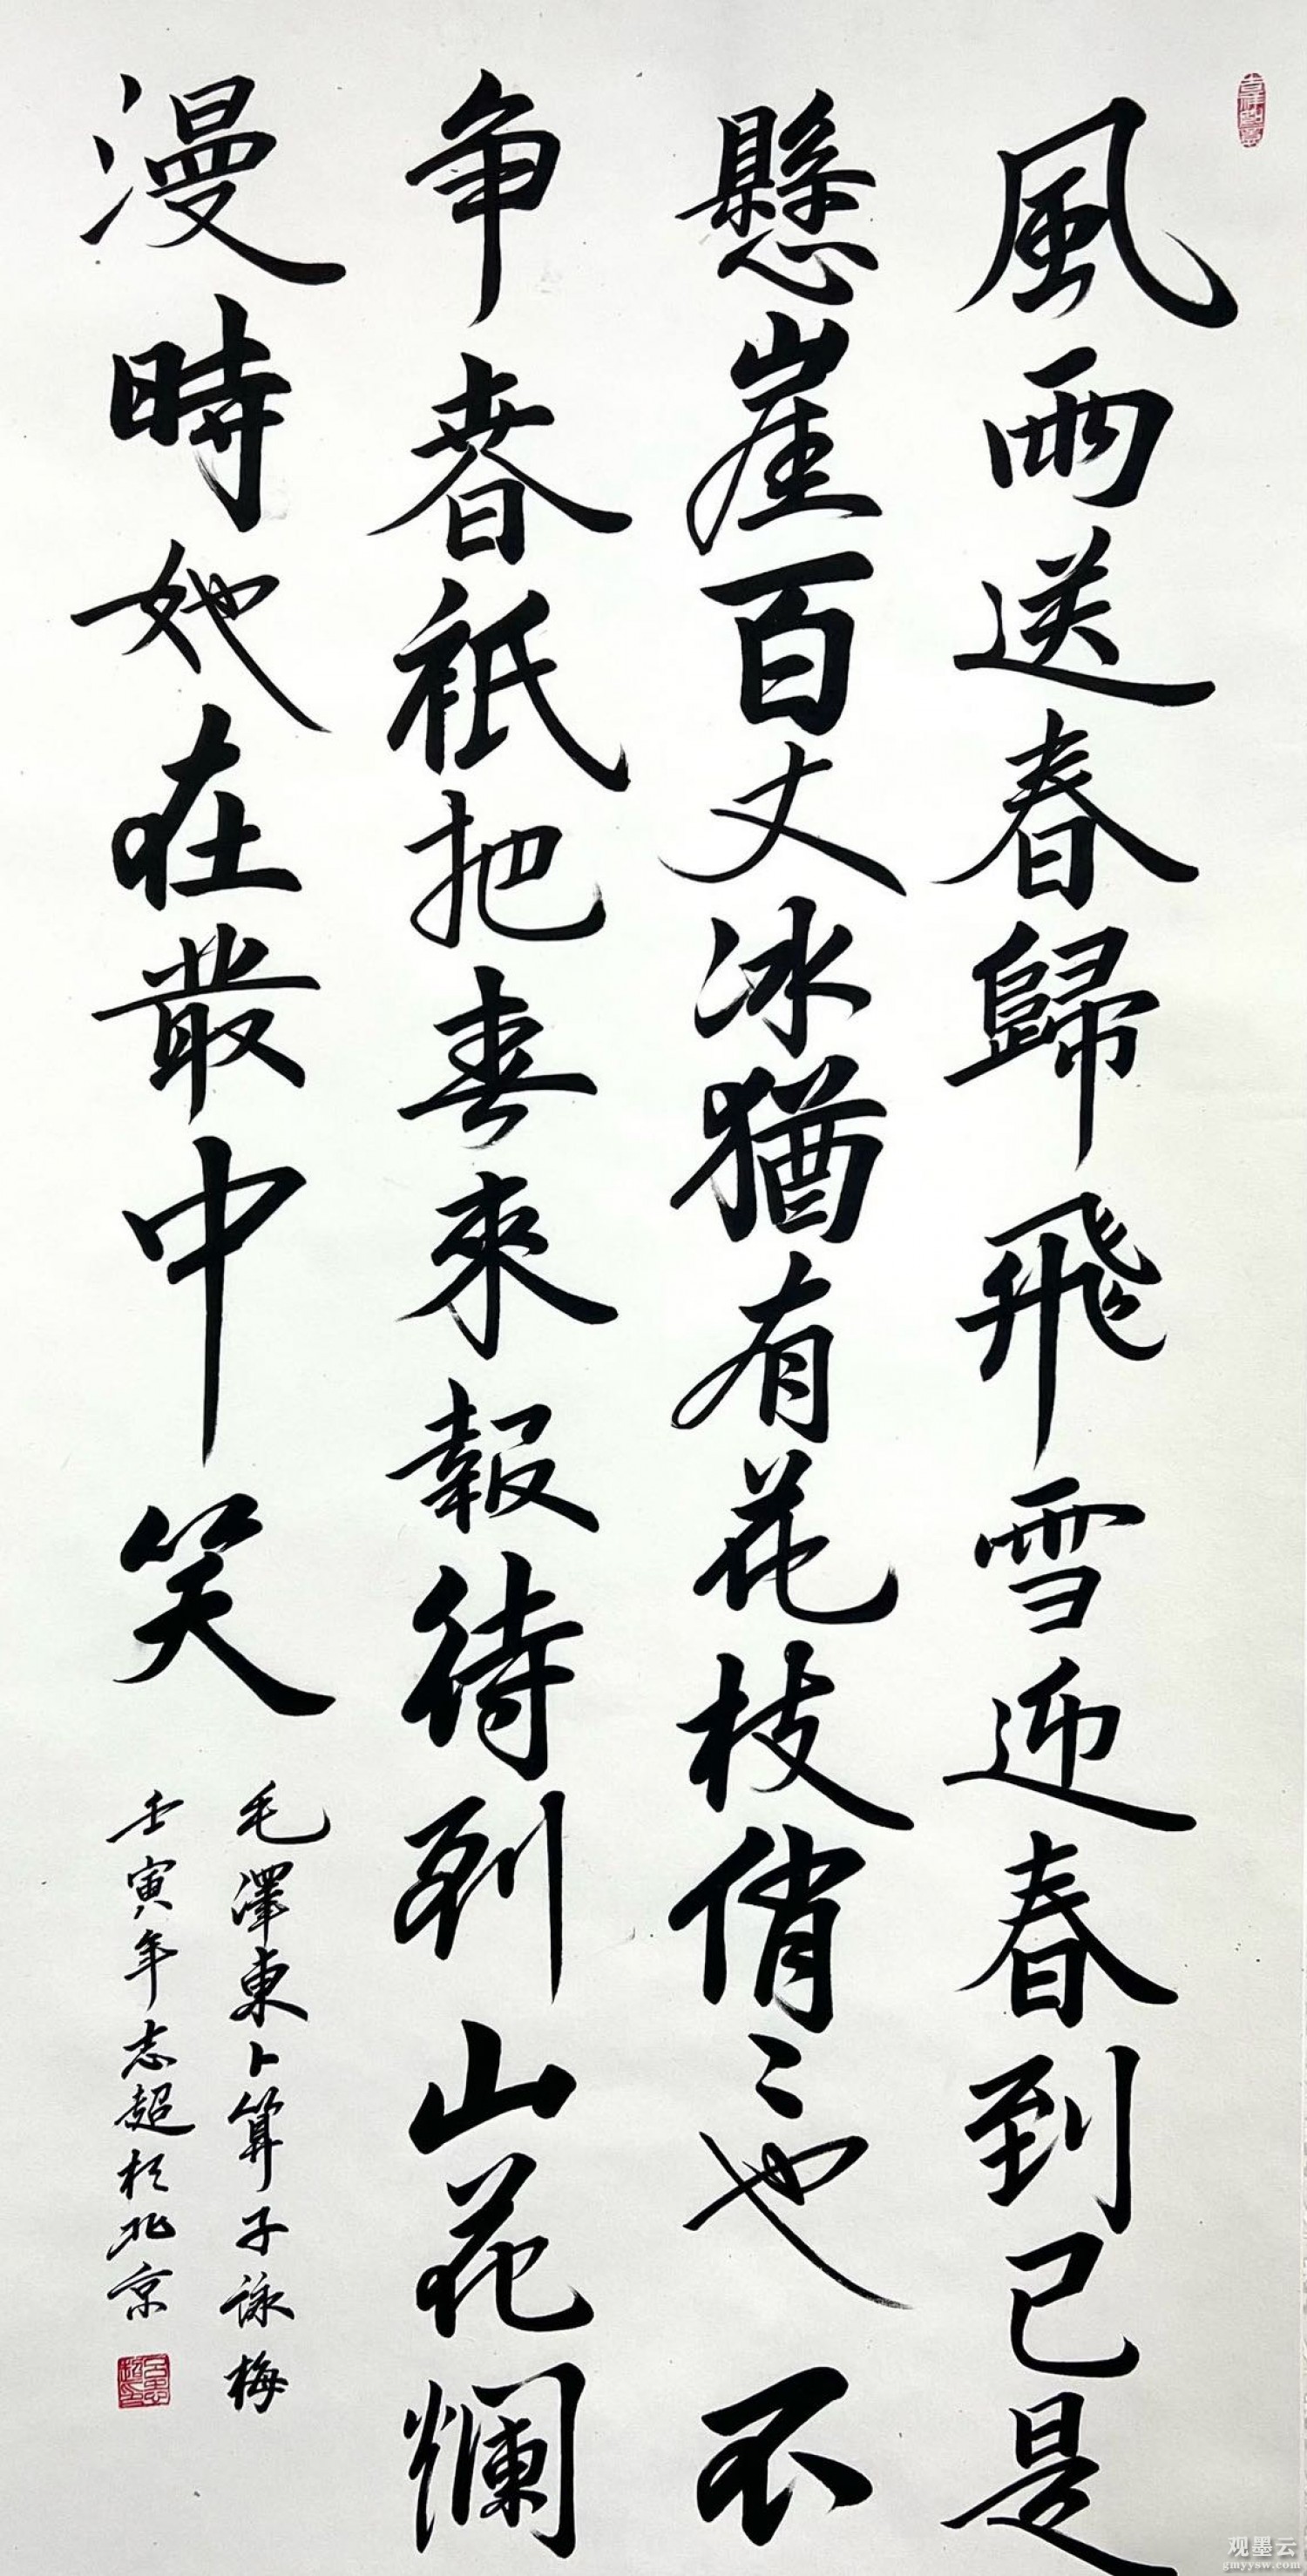 風雨送春歸飛雪迎春到已是
懸崖百丈冰猶有花枝俏〻也不
争春衹把春來報待到山花爛
漫時她在叢中笑
毛澤東卜算子詠梅
壬寅年志超於北京
吉祥如意
观墨云
gmyysw.com